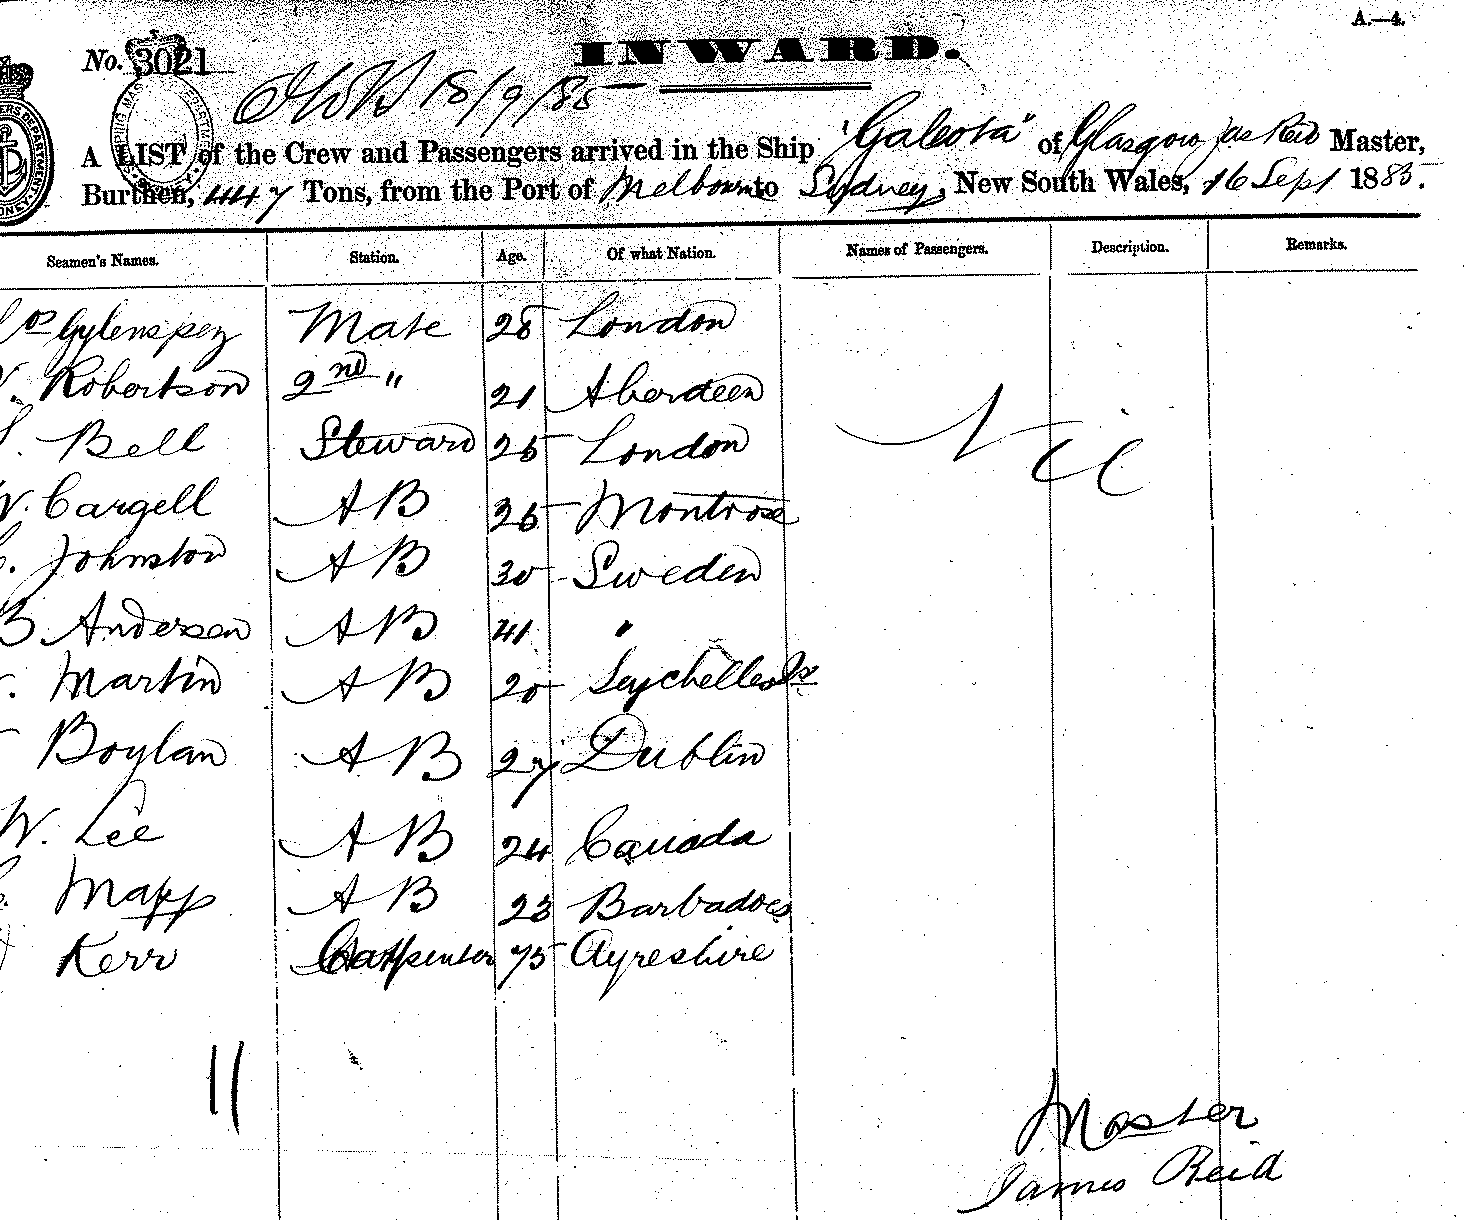 A.—4.
INWARD.
No. 3021
18/9/85
A LIST of the Crew and Passengers arrived in the Ship "Galeota" of Glasgow Jas Reid Master,
Burthen, 447 Tons, from the Port of Melbourne to Sydney, New South Wales, 16 Sept 1885.
Seamen's Names. Station. Age. Of what Nation. Names of Passengers. Description. Remarks.
Mate 28 London
Robertson 2nd " 21 Aberdeen
Bell Steward 25 London
Nil
W. Cargell AB 26 Montrose
Johnston AB 30 Sweden
B Anderson AB 41 "
Martin AB 20 Seychelles Is
Boylan AB 27 Dublin
W. Lee AB 24 Canada
Mapp AB 23 Barbadoes
Kerr Carpenter 75 Ayreshire
11
Master
James Reid